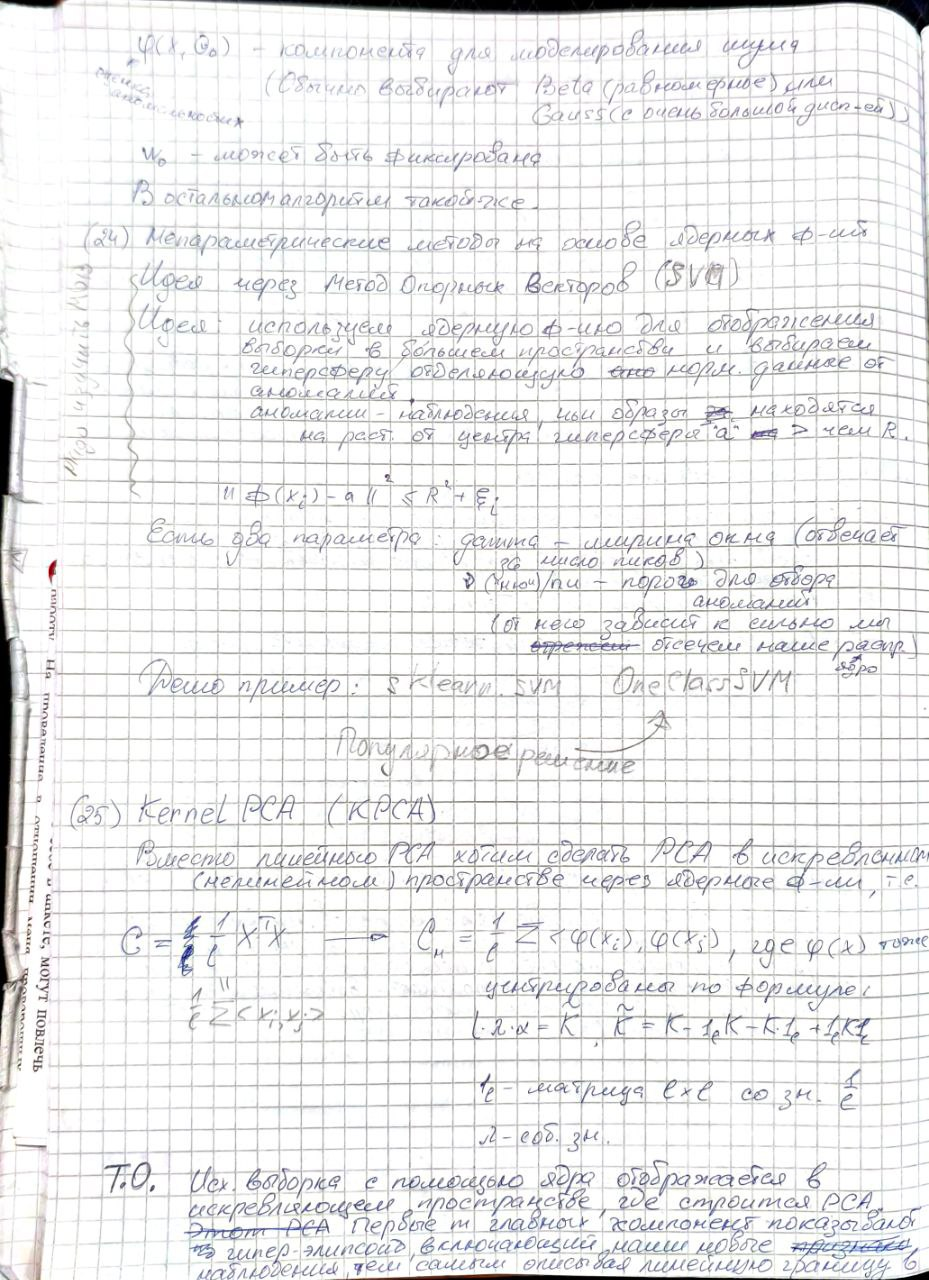 φ(x, Θ₀) – компонента для моделирования шума
(Обычно выбирают Beta (равномерное) или
Gauss (с очень большой дисп-ей))
w₀ – может быть фиксирована
В остальном алгоритм такой-же.
(24) Непараметрические методы на основе ядерных ф-ий
Идея через Метод Опорных Векторов (SVM)
Идея: используем ядерную ф-ию для отображения
выборки в бо́льшем пространстви и выбираем
гиперсферу отделяющую норм. данные от
аномалий.
аномалии – наблюдения, чьи образы находятся
на раст. от центра гиперсферы "a" > чем R.
|| Ф(xᵢ) – a ||² ≤ R² + ξᵢ
Есть два параметра: гамма – ширина окна (отвечает
за число пиков)
ν (ню)/nu – порог для отбора
аномалий
(от него зависит к сильно мы
отсечем наше распр)
ядро
Демо пример: sklearn.svm OneClassSVM
Популярное решение
(25) Kernel PCA (KPCA)
Вместо линейного PCA хотим сделать PCA в искревленном
(нелинейном) пространстве через ядерные ф-ли, т.е.
C = 1/ℓ XᵀX → Cн = 1/ℓ Σ < φ(xᵢ), φ(xⱼ) , где φ(x) тоже
1/ℓ Σ < xᵢ, xⱼ >
центрированы по формуле:
ℓ·λ·α = K̃, K̃ = K – 1ℓK – K·1ℓ + 1ℓK1ℓ
1ℓ – матрица ℓ×ℓ со зн. 1/ℓ
λ – соб. зн.
Т.О. Исх. выборка с помощью ядра отображается в
искревляющем пространстве, где строится PCA.
Первые m главных компонент показывают
гипер-элипсоид, включающий наши новые
наблюдения, тем самым описывая линейную границу в
работу. На проведение в отношении меня
могут повлечь